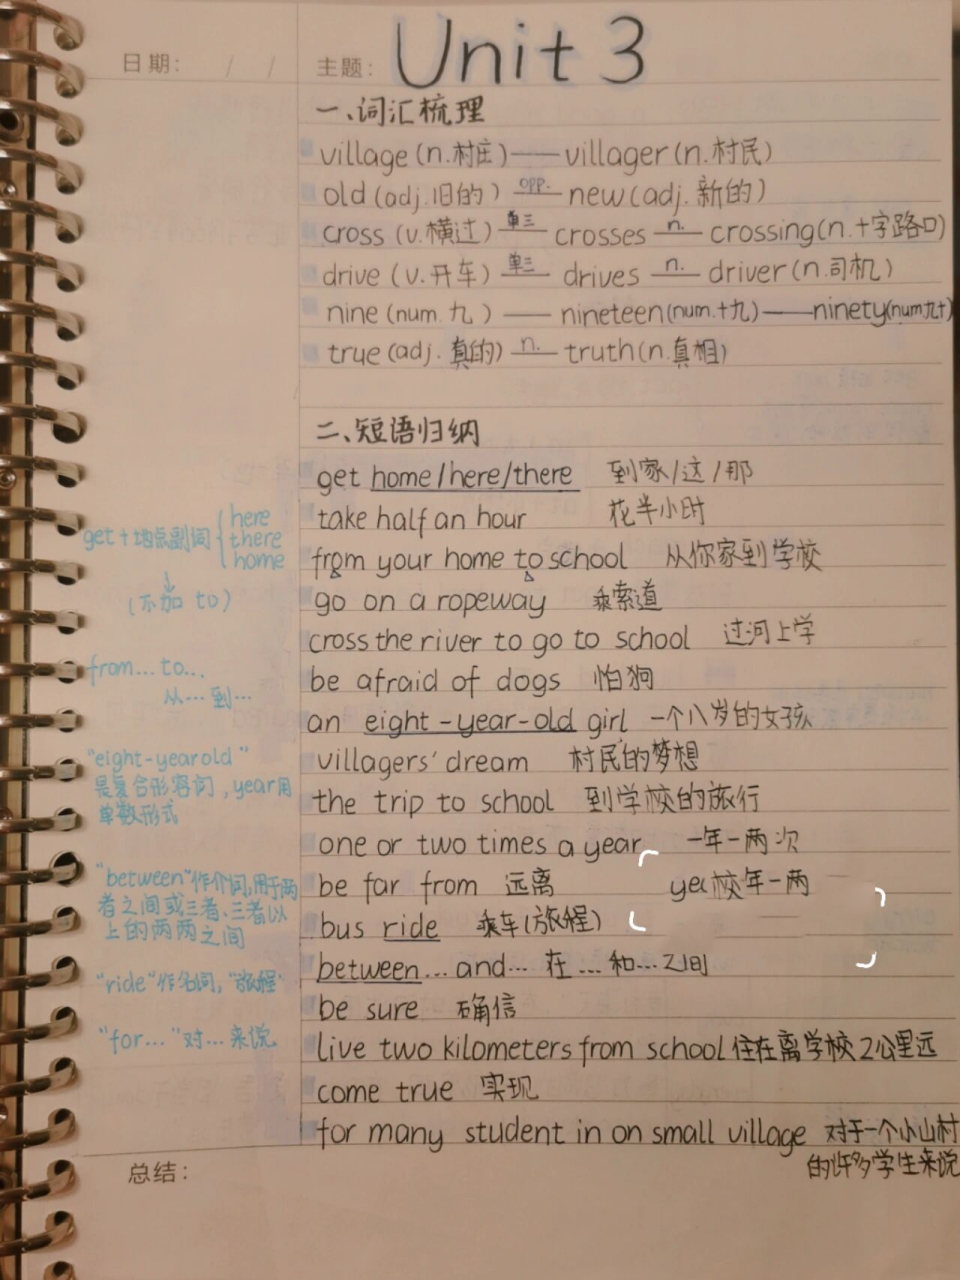 日期: / / 主题: Unit 3
一、词汇梳理
village (n.村庄) —— villager (n.村民)
old (adj.旧的) opp. new (adj.新的)
cross (v.横过) 单三 crosses n. crossing(n.十字路口)
drive (v.开车) 单三 drives n. driver (n.司机)
nine (num.九) —— nineteen(num.十九)——ninety(num九十)
true (adj.真的) n. truth(n.真相)
二、短语归纳
get home/here/there 到家/这/那
take half an hour 花半小时
from your home to school 从你家到学校
go on a ropeway 乘索道
cross the river to go to school 过河上学
be afraid of dogs 怕狗
an eight-year-old girl 一个八岁的女孩
villagers' dream 村民的梦想
the trip to school 到学校的旅行
one or two times a year 一年一两次
be far from 远离 校年一两
bus ride 乘车(旅程)
between...and... 在...和...之间
be sure 确信
live two kilometers from school 住在离学校2公里远
come true 实现
for many student in on small village 对于一个小山村
的许多学生来说
get+地点副词 { here
there
home
↓
(不加 to)
from... to...
从...到...
"eight-year old"
是复合形容词,year用
单数形式
"between"作介词,用于两
者之间或三者、三者以
上的两两之间
"ride"作名词,"旅程"
"for..."对...来说
总结: